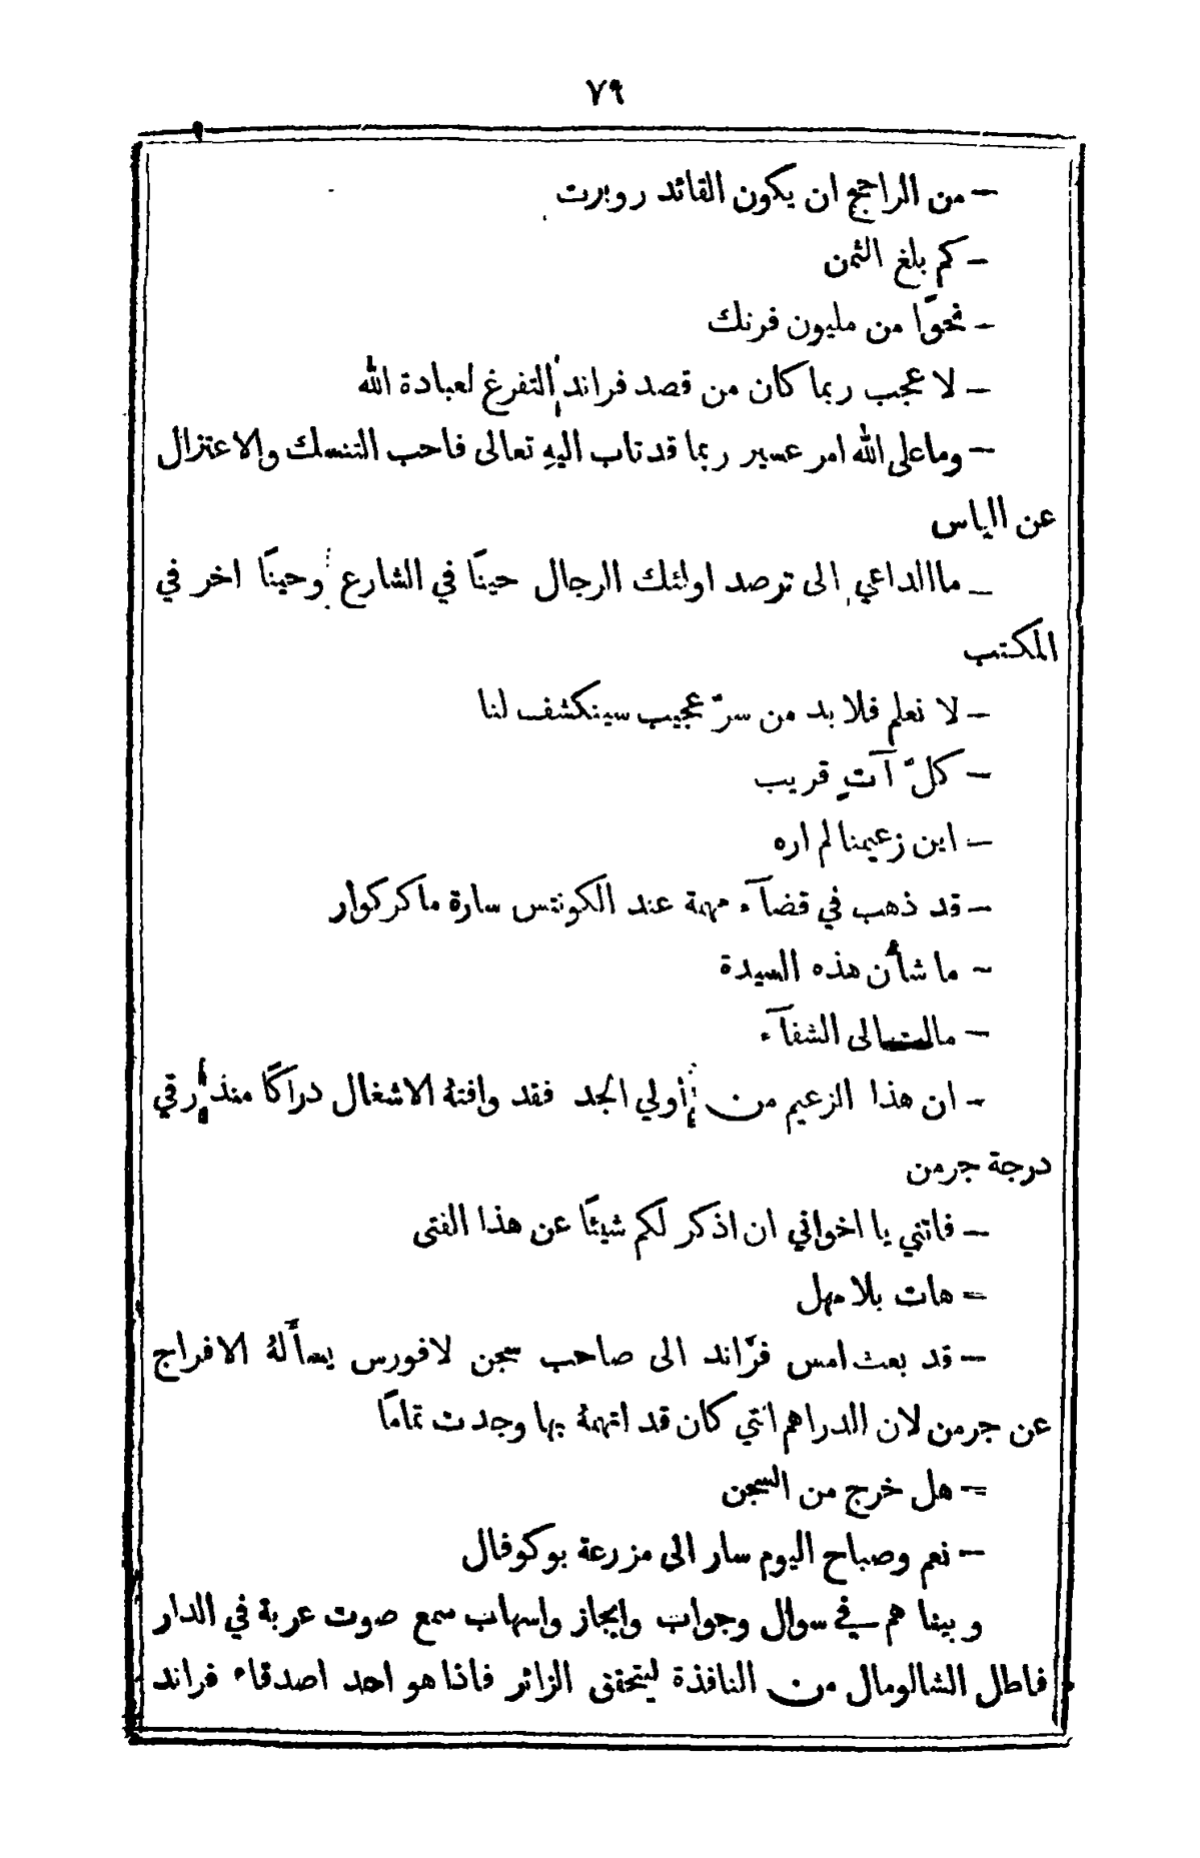 ٧٩
– من الراجح ان يكون القائد روبرت
– كم بلغ الثمن
– نحوًا من مليون فرنك
– لا عجب ربما كان من قصد فراند التفرغ لعبادة الله
– وما على الله امر عسير ربما قد تاب اليهِ تعالى فاحب التنسك والاعتزال
عن الياس
– ما الداعي الى ترصد اولئك الرجال حينًا في الشارع وحينًا اخر في
المكتب
– لا نعلم فلا بد من سرّ عجيب سينكشف لنا
– كلّ آتٍ قريب
– اين زعيمنا لم اره
– قد ذهب في قضآء مهمة عند الكونتس سارة ماكركوار
– ما شأن هذه السيدة
– مالت الى الشفآء
– ان هذا الزعيم من أولي الجد فقد وافتهُ الاشغال دراكًا منذ رقي
درجة جرمن
– فاتني يا اخواني ان اذكر لكم شيئًا عن هذا الفتى
= هات بلا مهل
– قد بعث امس فرّاند الى صاحب سجن لافورس يسألهُ الافراج
عن جرمن لان الدراهم التي كان قد اتهمهُ بها وجدت تمامًا
= هل خرج من السجن
– نعم وصباح اليوم سار الى مزرعة بوكوفال
وبينا هم في سوال وجواب وايجاز واسهاب سمع صوت عربة في الدار
فاطل الشالومال من النافذة ليتحقق الزائر فاذا هو احد اصدقاء فراند